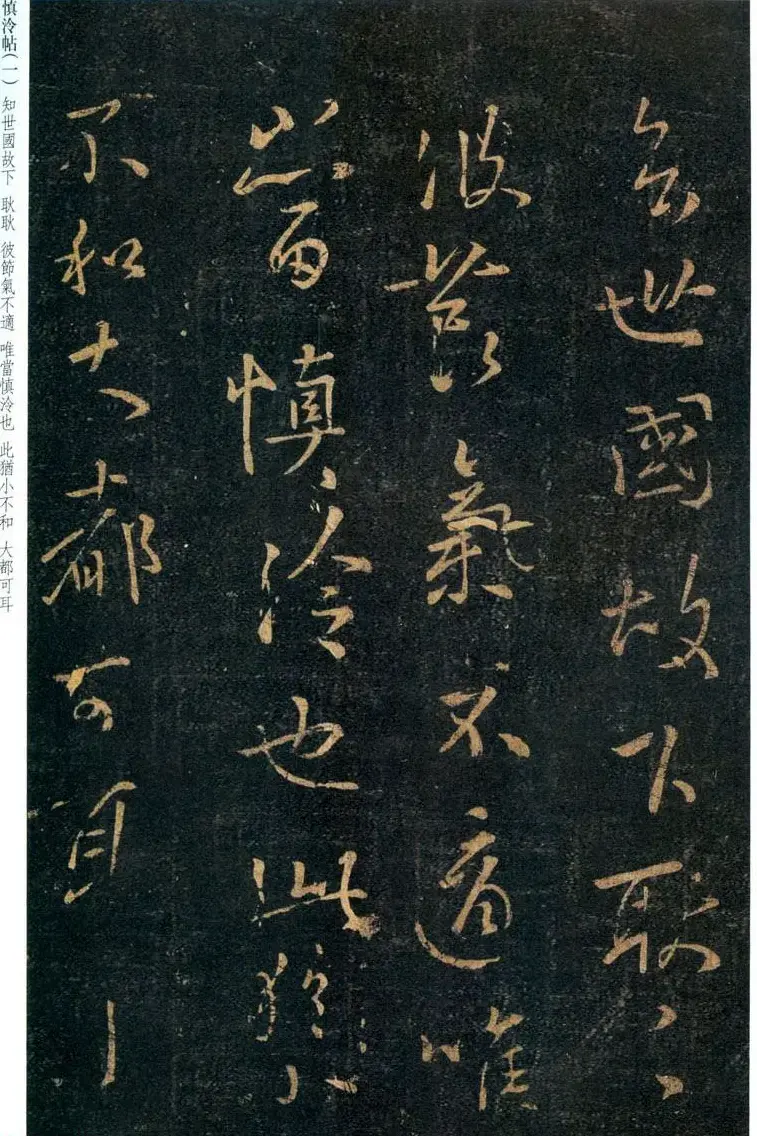 知世國故下耿〻
彼節氣不適唯
當慎泠也此猶小
不和大都可耳
慎泠帖(一) 知世國故下 耿耿 彼節氣不適 唯當慎泠也 此猶小不和 大都可耳